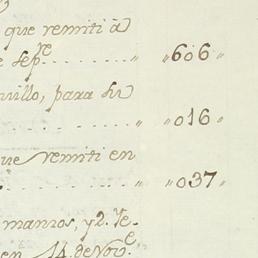 que remiti à
e sep.re ........ „ 606 „
villo, para su
........ „ 016 „
que remiti en
........ „ 037 „
manzos, y 2. Te
en 14. de Nov.e